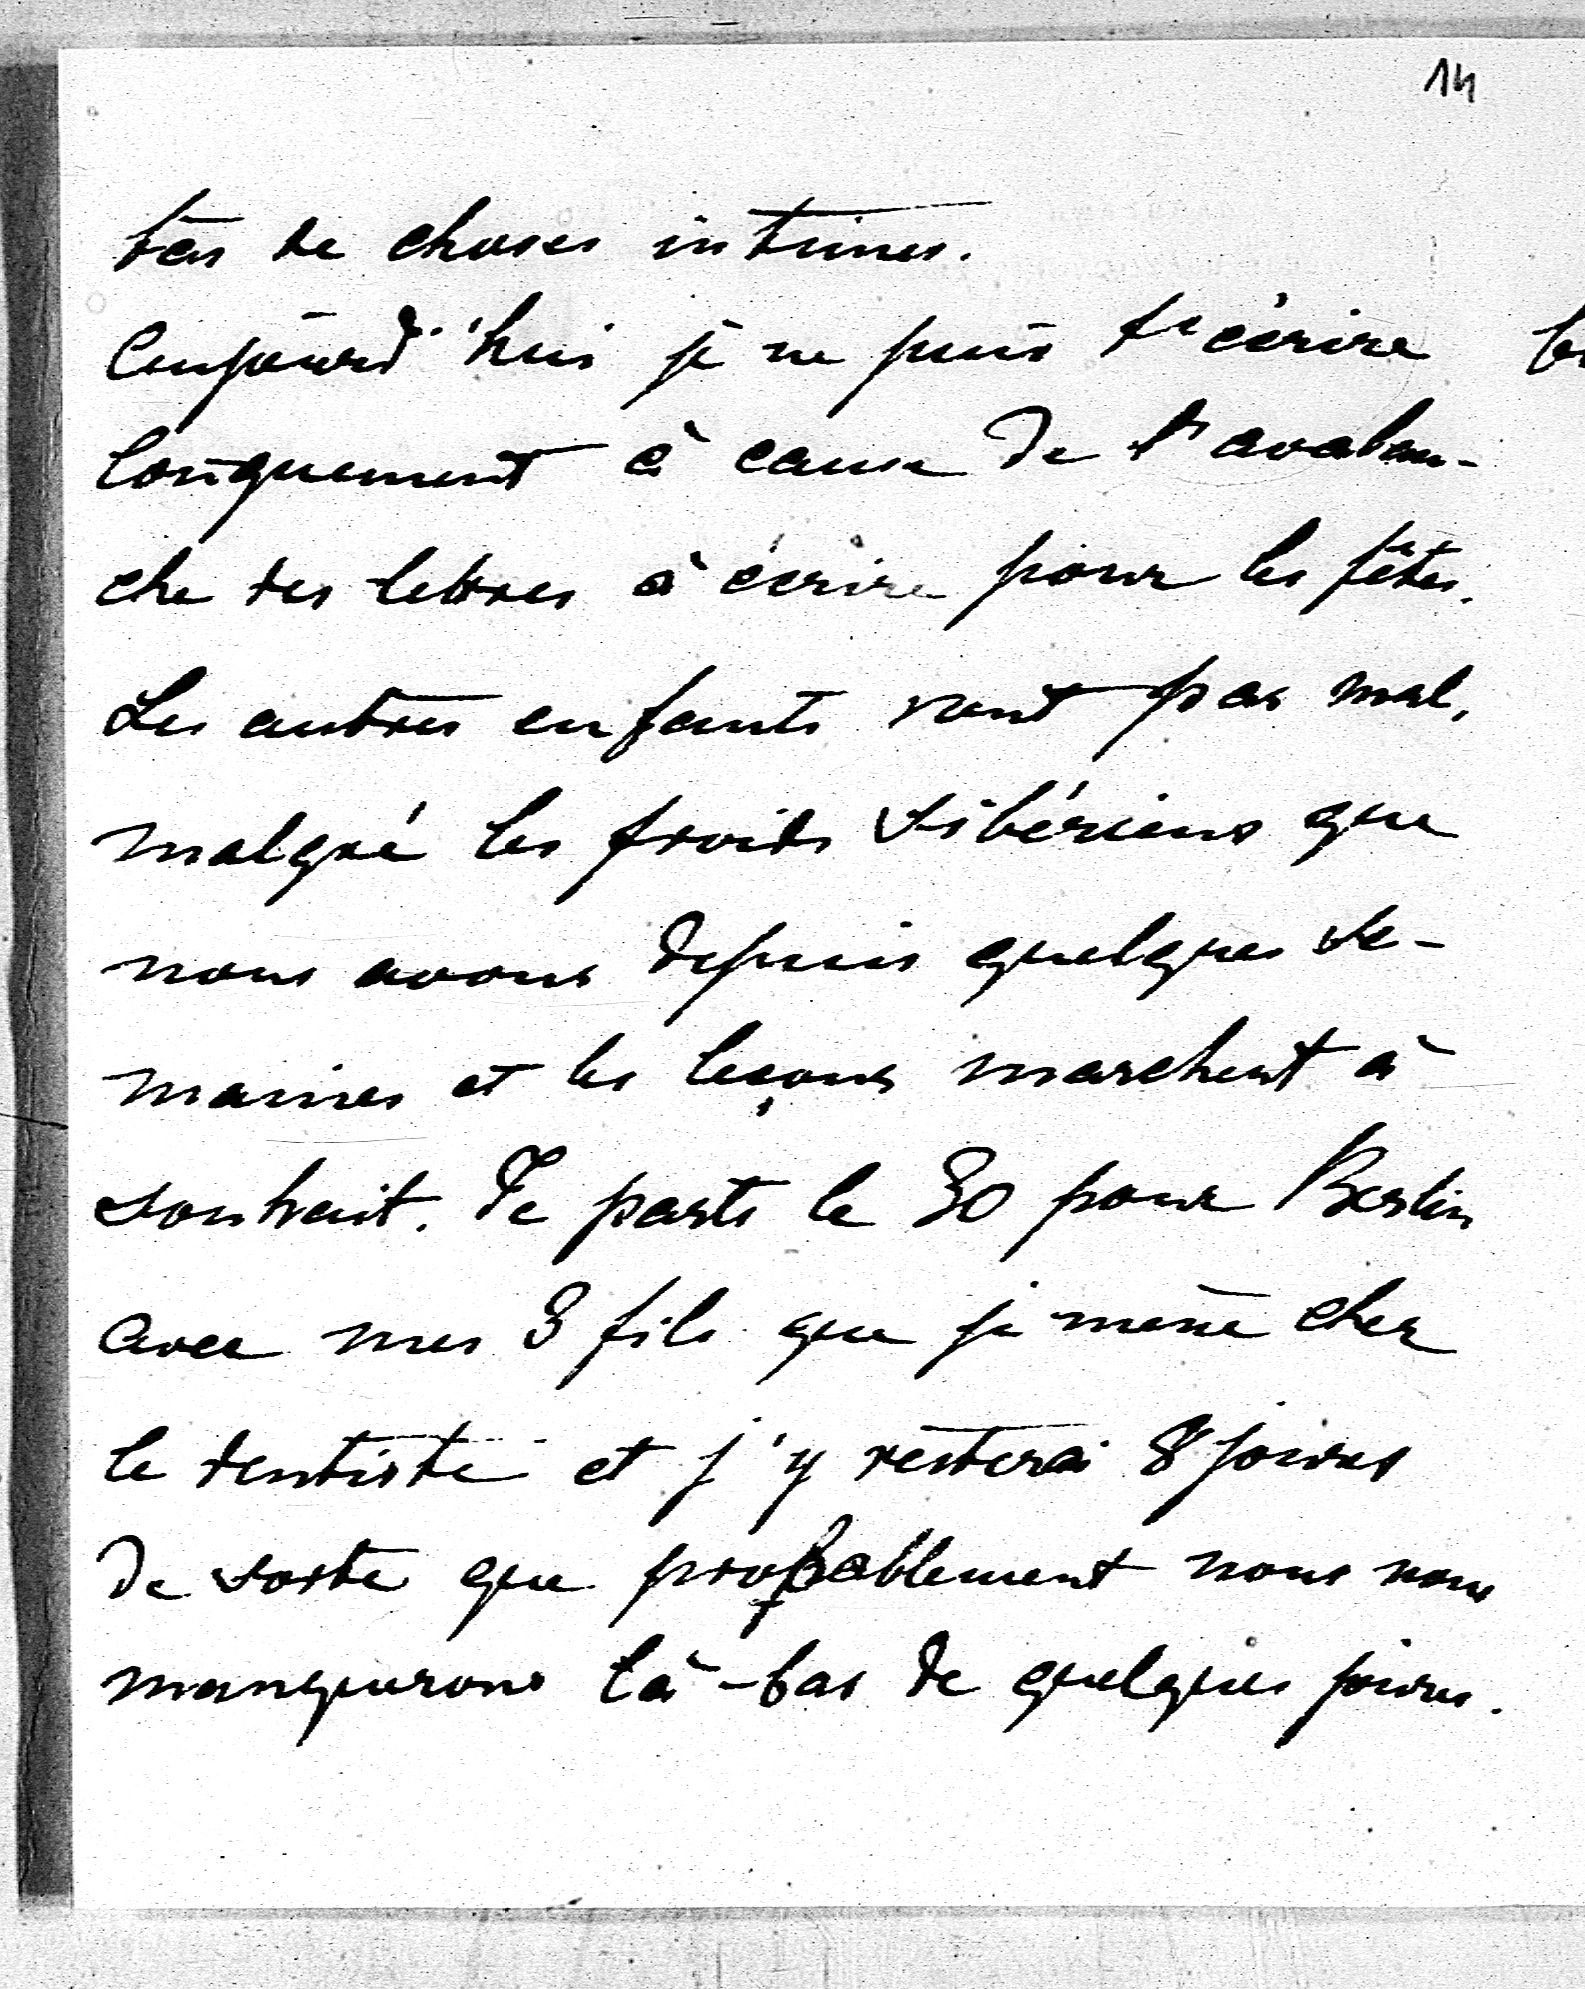 14
tes de choses intimes.
Aujourd'hui je ne puis t'écrire
longuement à cause de l'avalan-
che des lettres à écrire pour les fêtes.
Les autres enfants vont pas mal,
malgré les froids sibériens que
nous avons depuis quelques se-
maines et les leçons marchent à
souhait. Je parts le 30 pour Berlin
avec mes 3 fils que je mène chez
le dentiste et j'y resterai 8 jours
de sorte que probablement nous nous
manquerons là-bas de quelques jours.